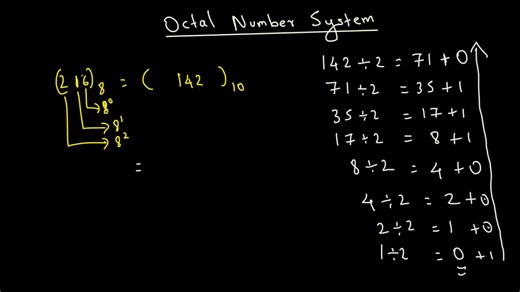 Octal Number System
(216)₈ = ( 142 )₁₀
8⁰
8¹
8²
=
142 ÷ 2 = 71 + 0
71 ÷ 2 = 35 + 1
35 ÷ 2 = 17 + 1
17 ÷ 2 = 8 + 1
8 ÷ 2 = 4 + 0
4 ÷ 2 = 2 + 0
2 ÷ 2 = 1 + 0
1 ÷ 2 = 0 + 1